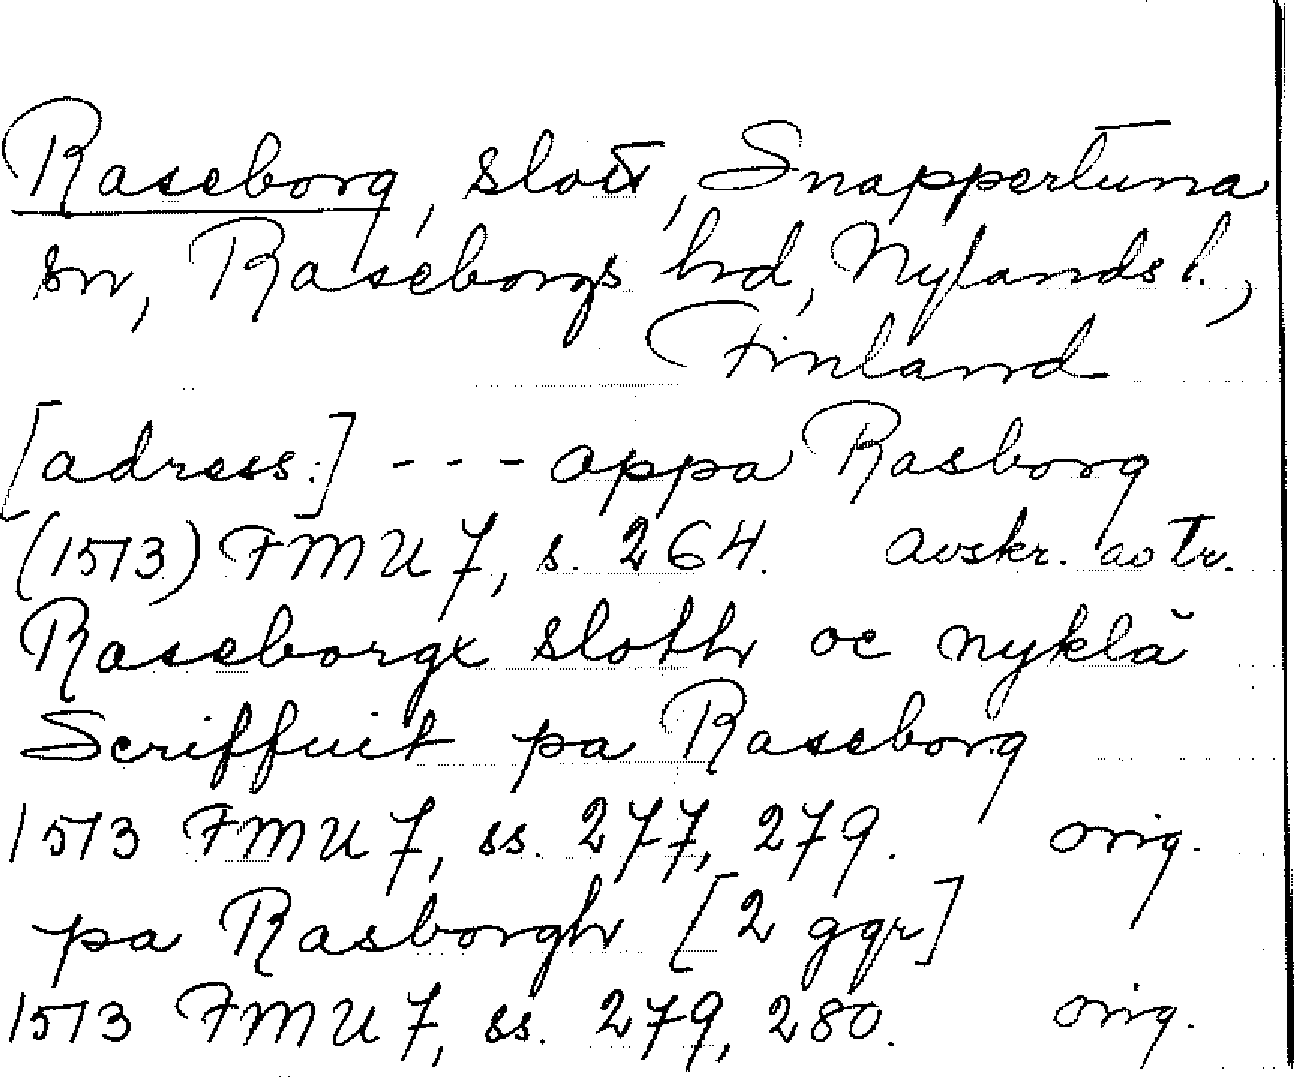 Raseborg, slott, Snappertuna
sn, Raseborgs hd, Nylands l.,
Finland
[adress:] - - - appa Rasborg
(1573) FMU 7, s. 264. avskr. avtr.
Raseborgx sloth oc nyklā
Scriffuit pa Raseborg
1573 FMU 7, ss. 277, 279. orig.
pa Rasborgh [2 ggr]
1573 FMU 7, ss. 279, 280. orig.